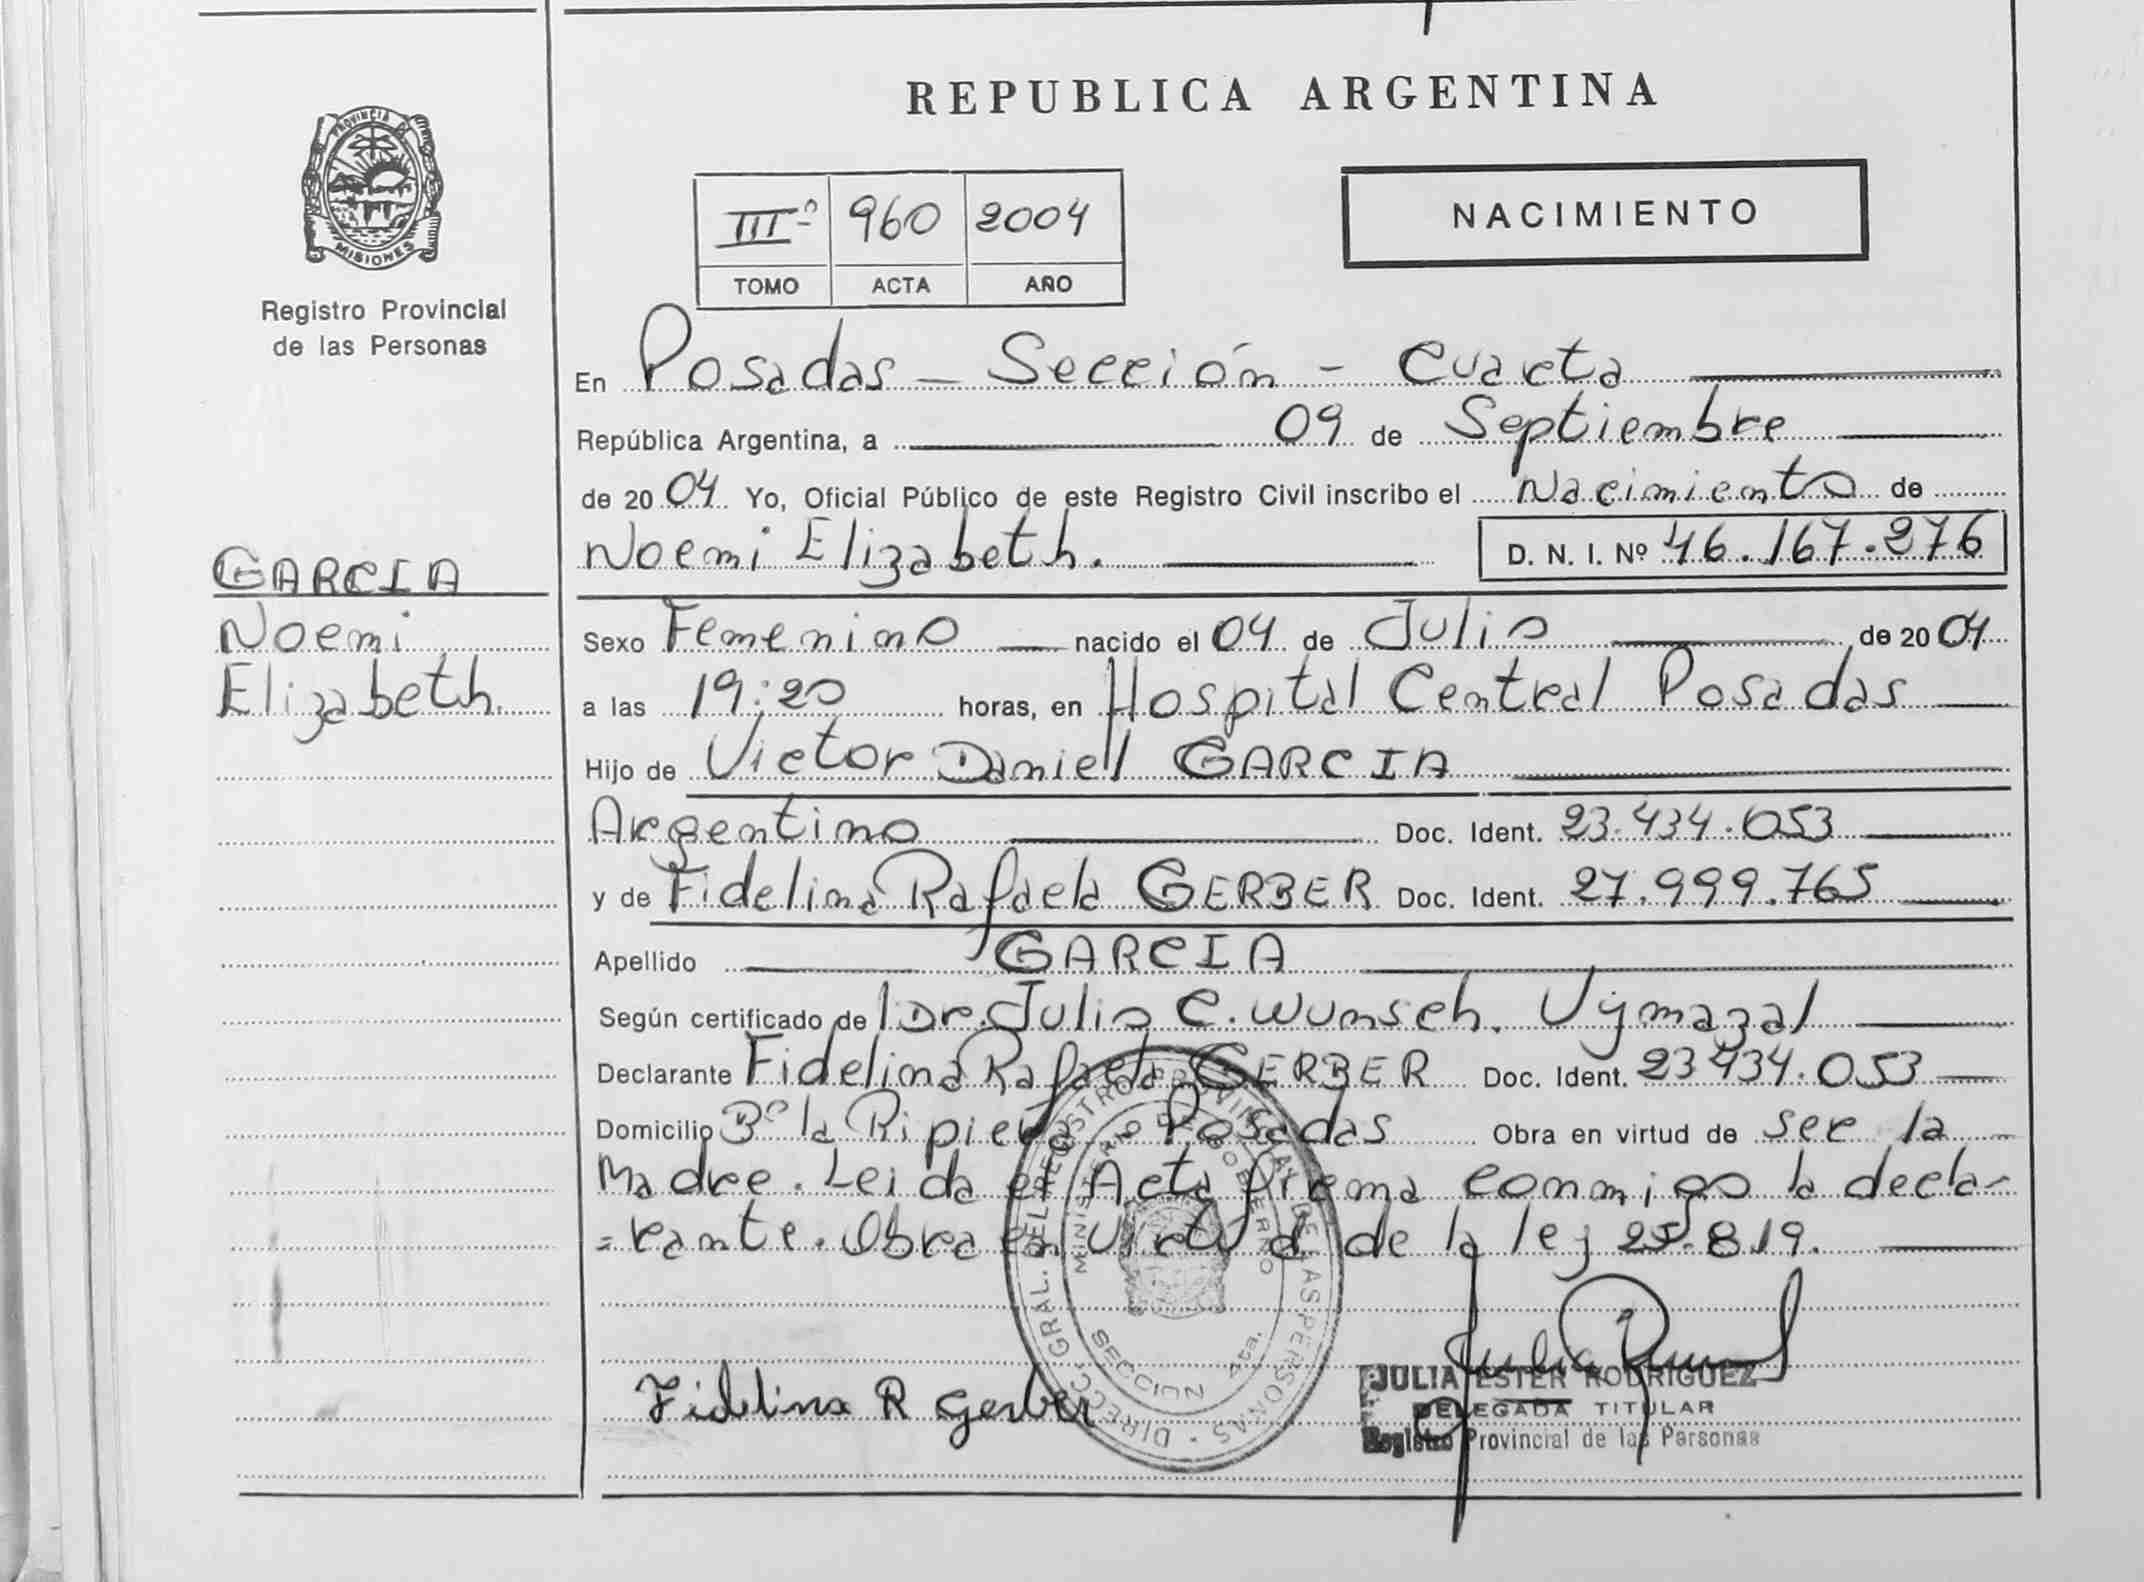 REPUBLICA ARGENTINA
PROVINCIA DE
MISIONES
Registro Provincial
de las Personas
IIIº 960 2004
TOMO ACTA AÑO
NACIMIENTO
En Posadas - Sección - Cuarta
República Argentina, a 09 de Septiembre
de 2004. Yo, Oficial Público de este Registro Civil inscribo el Nacimiento de
Noemi Elizabeth. D. N. I. Nº 46.167.276
GARCIA
Noemi
Elizabeth.
Sexo Femenino nacido el 04 de Julio de 2004
a las 19:20 horas, en Hospital Central Posadas
Hijo de Victor Daniel GARCIA
Argentino Doc. Ident. 23.434.053
y de Fidelina Rafaela GERBER Doc. Ident. 27.999.765
Apellido GARCIA
Según certificado de Dr. Julio C. Wunsch.
Declarante Fidelina Rafaela GERBER Doc. Ident. 23434.053
Domicilio Bº la Posadas Obra en virtud de ser la
Madre. Leida el Acta firma conmigo la decla-
=rante. Obra en virtud de la ley 25.819.
DIRECC. GRAL. DEL REGISTRO PROVINCIAL DE LAS PERSONAS
MINISTERIO DE GOBIERNO
SECCION 4ta.
Fidelina R Gerber
JULIA ESTER RODRIGUEZ
DELEGADA TITULAR
Registro Provincial de las Personas